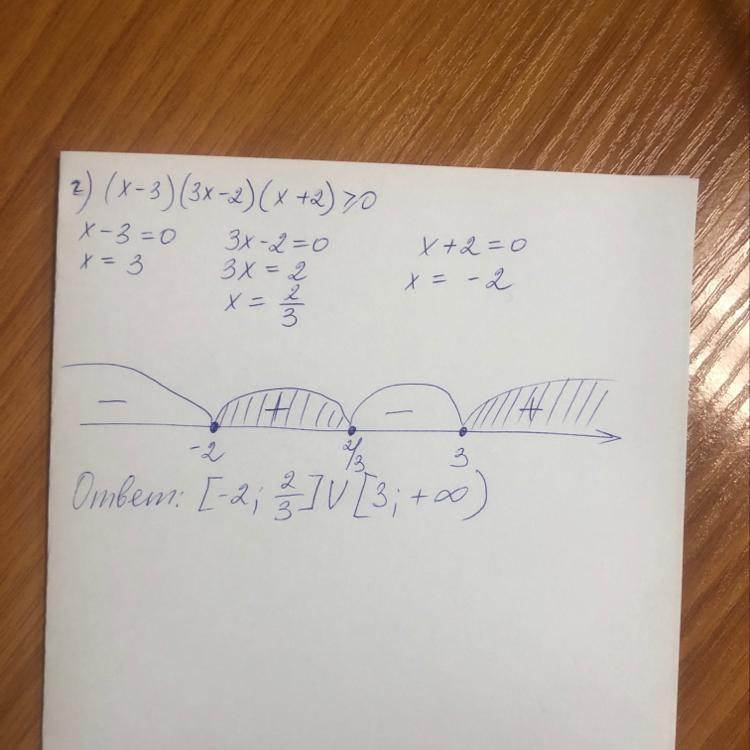 г) (x-3)(3x-2)(x+2)≥0
x-3=0 3x-2=0 x+2=0
x=3 3x=2 x=-2
x=2/3
- + - +
-2 2/3 3
Ответ: [-2; 2/3]∪[3; +∞)